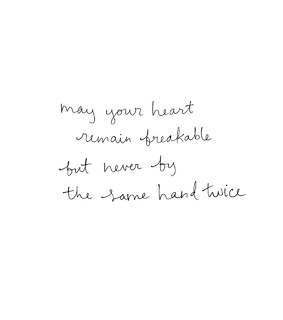 may your heart
remain breakable
but never by
the same hand twice